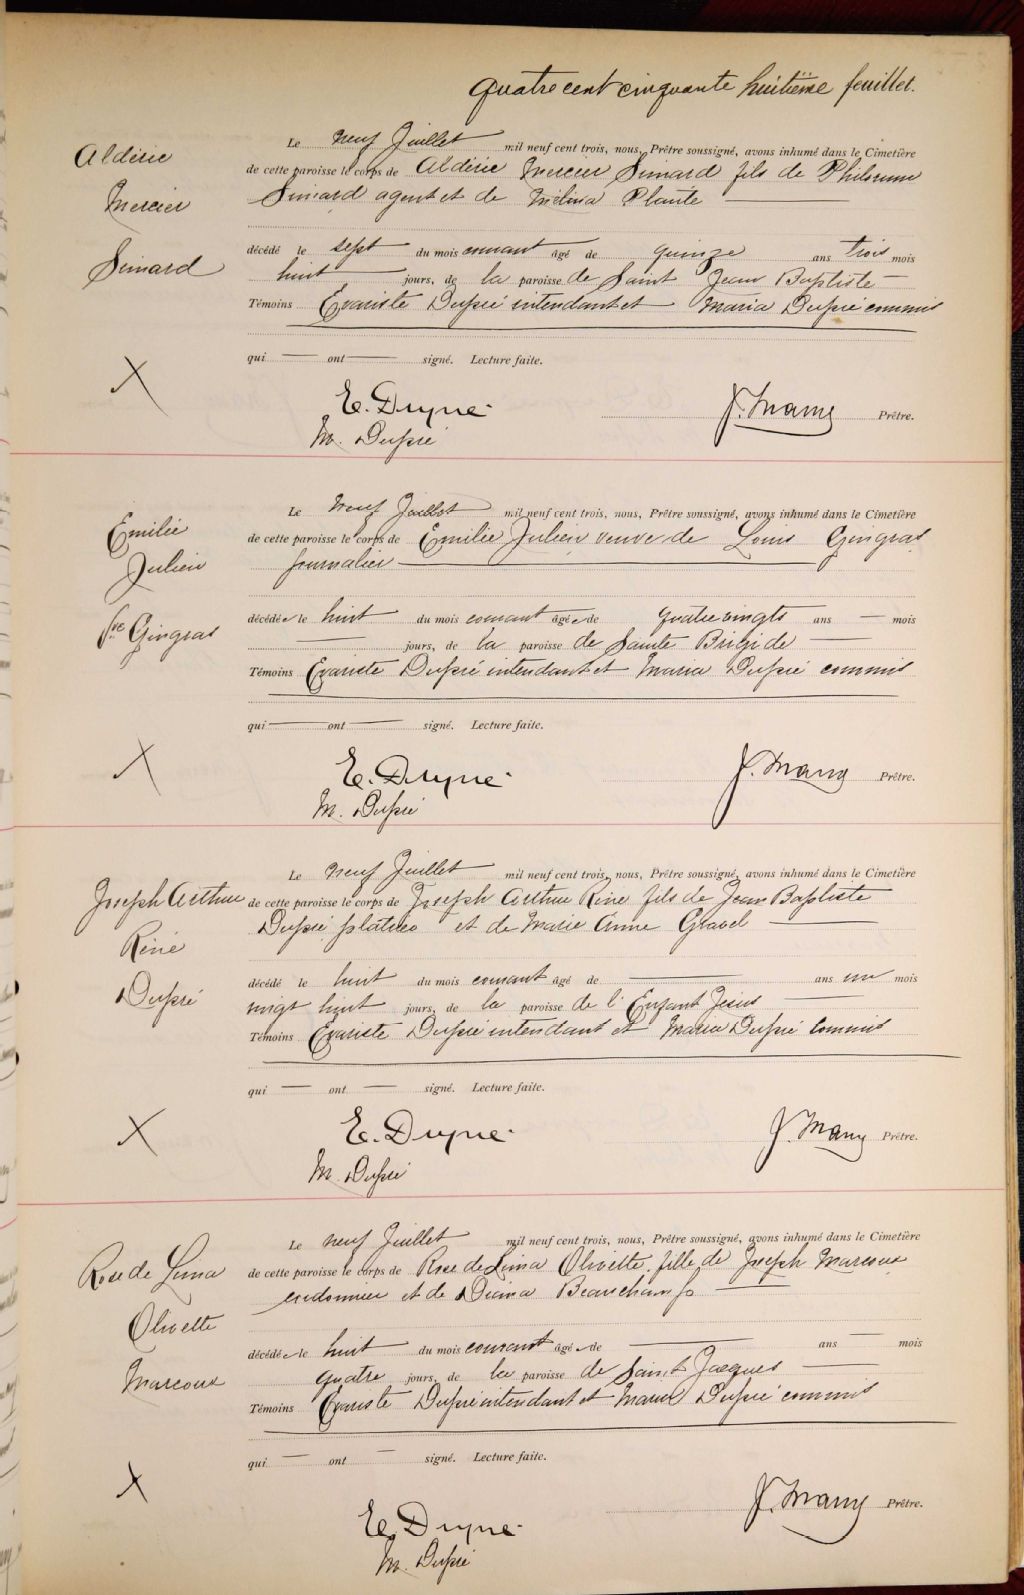 Quatre cent cinquante huitième feuillet.
Alderic
Mercier
Simard
Le neuf Juillet mil neuf cent trois, nous, Prêtre soussigné, avons inhumé dans le Cimetière
de cette paroisse le corps de Alderic Mercier Simard fils de Philorum
Simard agent et de Mélina Plante
décédé le sept du mois courant âgé de quinze ans trois mois
huit jours, de la paroisse de Saint Jean Baptiste
Témoins Evariste Dupré intendant et Maria Dupré commis
qui ont signé. Lecture faite.
X
E. Dupré
M. Dupré
J. Many Prêtre.
Emilie
Julien
Ve Gingras
Le neuf Juillet mil neuf cent trois, nous, Prêtre soussigné, avons inhumé dans le Cimetière
de cette paroisse le corps de Emilie Julien veuve de Louis Gingras
journalier
décédée le huit du mois courant âgée de quatre vingts ans mois
jours, de la paroisse de Sainte Brigide
Témoins Evariste Dupré intendant et Maria Dupré commis
qui ont signé. Lecture faite.
X
E. Dupré
M. Dupré
J. Many Prêtre.
Joseph Arthur
Réné
Dupré
Le neuf Juillet mil neuf cent trois, nous, Prêtre soussigné, avons inhumé dans le Cimetière
de cette paroisse le corps de Joseph Arthur Réné fils de Jean Baptiste
Dupré et de Marie Anne Gravel
décédé le huit du mois courant âgé de ans un mois
vingt huit jours, de la paroisse de l'Enfant Jésus
Témoins Evariste Dupré intendant et Maria Dupré commis
qui ont signé. Lecture faite.
X
E. Dupré
M. Dupré
J. Many Prêtre.
Rose de Lima
Olivette
Marcoux
Le neuf Juillet mil neuf cent trois, nous, Prêtre soussigné, avons inhumé dans le Cimetière
de cette paroisse le corps de Rose de Lima Olivette fille de Joseph Marcoux
cordonnier et de Diana Beauchamp
décédée le huit du mois courant âgée de ans mois
quatre jours, de la paroisse de Saint Jacques
Témoins Evariste Dupré intendant et Maria Dupré commis
qui ont signé. Lecture faite.
X
E. Dupré
M. Dupré
J. Many Prêtre.